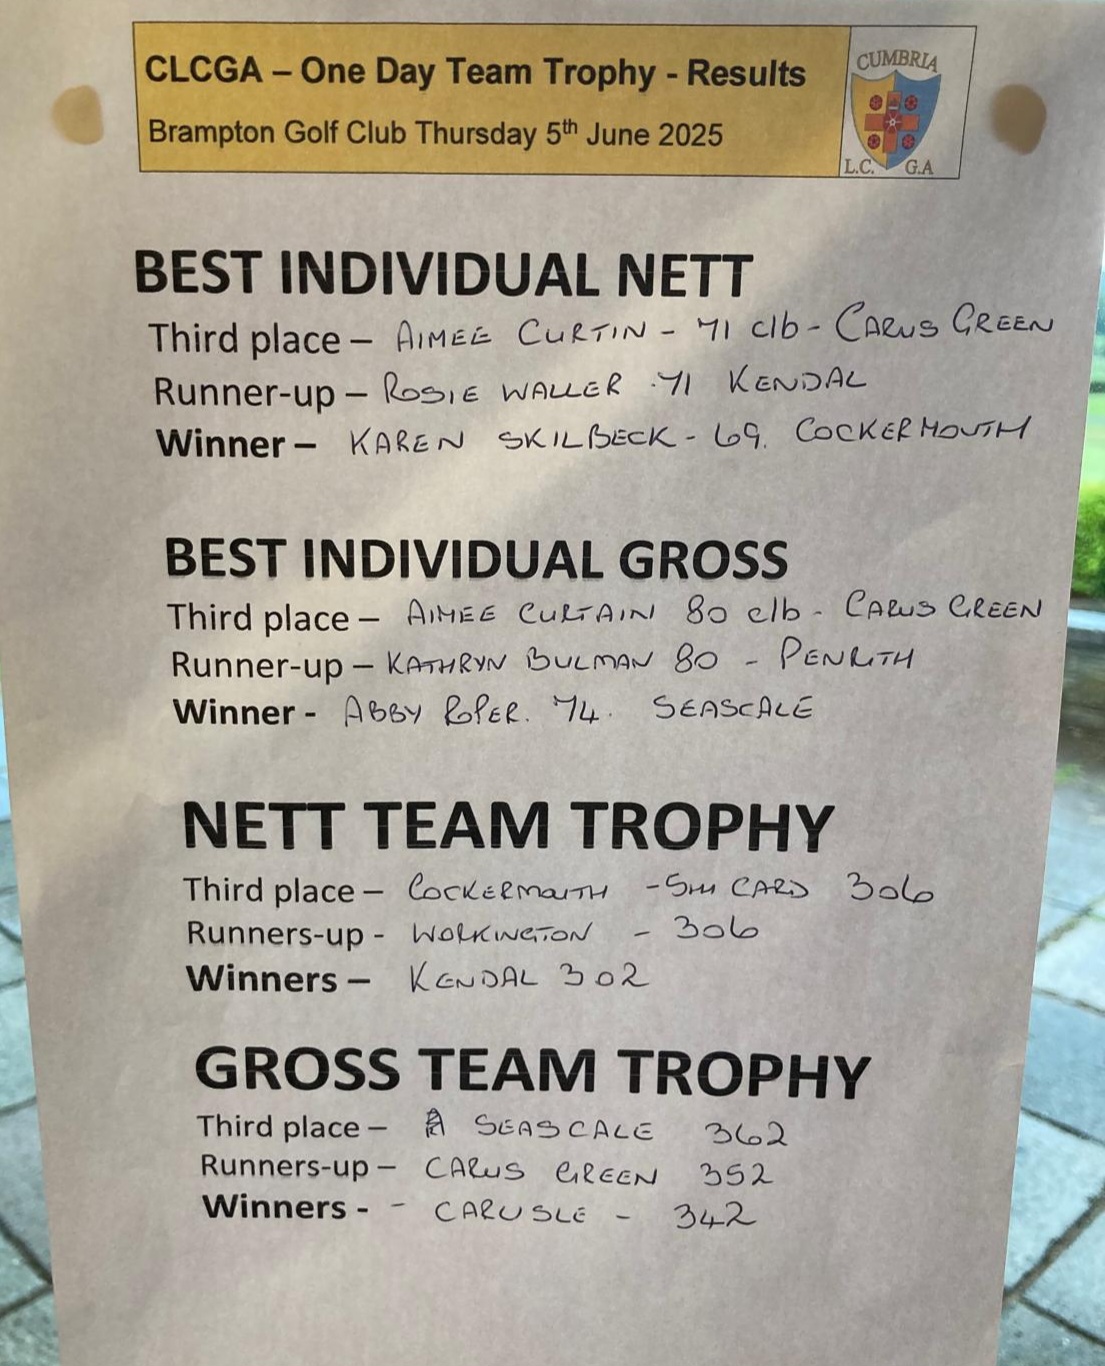 CLCGA – One Day Team Trophy - Results
Brampton Golf Club Thursday 5th June 2025
CUMBRIA
L.C. G.A
BEST INDIVIDUAL NETT
Third place – AIMEE CURTIN - 71 c/b - CARUS GREEN
Runner-up – ROSIE WALLER 71 KENDAL
Winner – KAREN SKILBECK - 69. COCKERMOUTH
BEST INDIVIDUAL GROSS
Third place – AIMEE CURTAIN 80 c/b - CARUS GREEN
Runner-up – KATHRYN BULMAN 80 - PENRITH
Winner - ABBY ROPER. 74. SEASCALE
NETT TEAM TROPHY
Third place – COCKERMOUTH - 5TH CARD 306
Runners-up - WORKINGTON - 306
Winners – KENDAL 302
GROSS TEAM TROPHY
Third place – SEASCALE 362
Runners-up – CARUS GREEN 352
Winners - - CARLISLE - 342